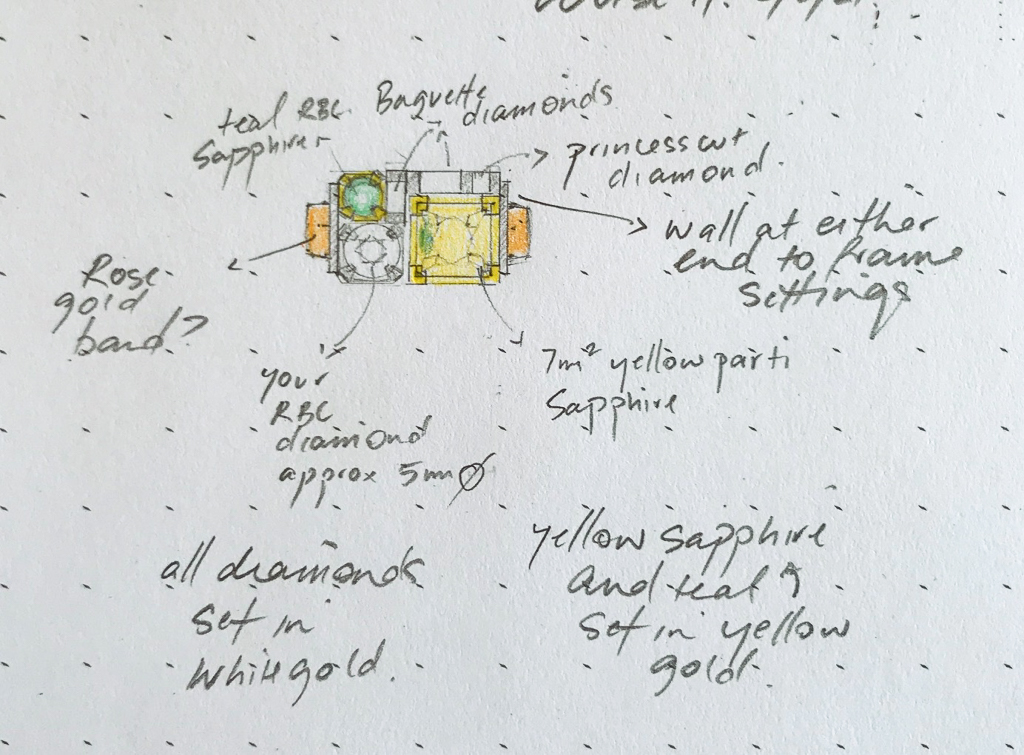 teal RBC
Sapphire
Baguette
diamonds
princess cut
diamond.
wall at either
end to frame
settings
Rose
gold
band?
your
RBC
diamond
approx 5mm Ø
7m² yellow parti
Sapphire
all diamonds
set in
white gold.
yellow sapphire
and teal ↑
set in yellow
gold.